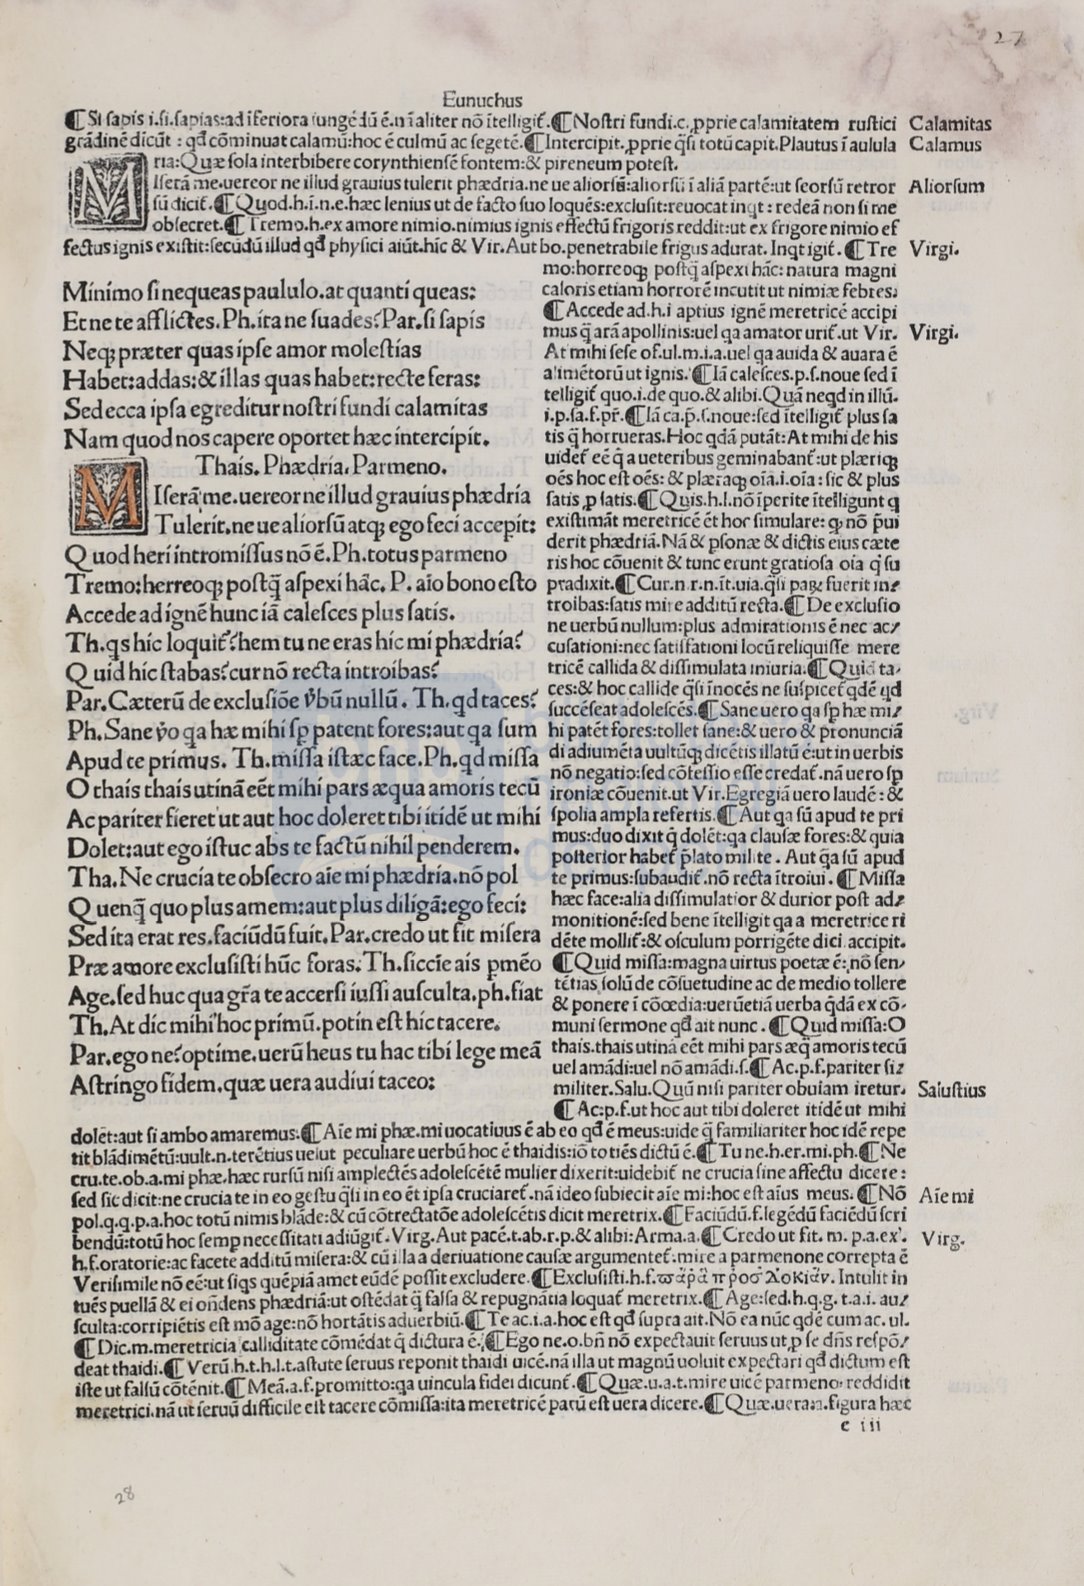 27
Eunuchus
¶ Si sapis i.si.sapias:ad īferiora iungēdū ē.n īaliter nō ītelligit̄.¶ Nostri fundi.c.ꝓprie calamitatem rustici
Calamitas
grādinē dicūt : qđ cōminuat calamū:hoc ē culmū ac segetē.¶ Intercipit.ꝓprie q̄si totū capit.Plautus ī aulula
Calamus
ria:Quæ sola interbibere corynthiensē fontem:& pireneum potest.
MIserā me.uereor ne illud grauius tulerit phædria.ne ue aliorsū:aliorsū ī aliā partē:ut seorsū retror
Aliorsum
sū dicit̄.¶ Quod.h.i.n.e.hæc lenius ut de facto suo loquēs:exclusit:reuocat inqt : redeā non si me
obsecret.¶ Tremo.h.ex amore nimio.nimius ignis effectū frigoris reddit:ut ex frigore nimio ef
fectus ignis existit:secūdū illud qđ physici aiūt.hīc & Vir.Aut bo.penetrabile frigus adurat.Inqt igit̄.¶ Tre
Virgi.
mo:horreoq; postq̄ aspexi hāc: natura magni
caloris etiam horrorē incutit ut nimiæ febres.
¶ Accede ad.h.i aptius ignē meretricē accipi
mus q̄ arā apollinis:uel qa amator urit̄.ut Vir.
Virgi.
At mihi sese of.ul.m.i.a.uel qa auida & auara ē
alimētorū ut ignis.¶ Iā calesces.p.s.noue sed ī
telligit̄ quo.i.de quo.& alibi.Quā neqd in illū.
i.p.sa.f.pr̄.¶ Iā ca.p̄.s.noue:sed ītelligit̄ plus sa
tis q̄ horrueras.Hoc qdā putāt:At mihi de his
uidet̄ eē q̄ a ueteribus geminabant̄:ut plæriq;
oēs hoc est oēs: & plæraq; oīa.i.oīa : sic & plus
satis ꝓ satis.¶ Quis.h.l.nō īperite ītelligunt q
existimāt meretricē ēt hoc simulare: q; nō p̄ui
derit phædriā.Nā & psonæ & dictis eius cæte
ris hoc cōuenit & tunc erunt gratiosa oīa q̄ su
pradixit.¶ Cur.n r.n.īt.uia.q̄si paꝝ fuerit in⸗
troibas:satis mire additū recta.¶ De exclusio
ne uerbū nullum:plus admirationis ē nec ac⸗
cusationi:nec satisfationi locū reliquisse mere
tricē callida & dissimulata iniuria.¶ Quid ta⸗
ces:& hoc callide q̄si īnocēs ne suspicet̄ qdē qd
succēseat adolescēs.¶ Sane uero qa sp hæ mi⸗
hi patēt fores:tollet sane:& uero & pronunciā
di adiumēta uultūq; dicētis illatū ē:ut in uerbis
nō negatio:sed cōfessio esse credat̄.nā uero sp
ironiæ cōuenit.ut Vir.Egregiā uero laudē : &
spolia ampla refertis.¶ Aut qa sū apud te pri
mus:duo dixit q̄ dolēt:qa clausæ fores:& quia
posterior habet̄ p̄lato milite . Aut q̄a sū apud
te primus:subaudit̄.nō recta ītroiui.¶ Missa
hæc face:alia dissimulatior & durior post ad⸗
monitionē:sed bene ītelligit qa a meretrice ri
dēte mollit̄:& osculum porrigēte dici accipit.
¶ Quid missa:magna uirtus poetæ ē: nō sen⸗
tētias solū de cōsuetudine ac de medio tollere
& ponere ī cōœdia:uerūetiā uerba q̄dā ex cō⸗
muni sermone qđ ait nunc.¶ Quid missa:O
thais.thais utinā eēt mihi pars æq̄ amoris tecū
uel amādi:uel nō amādi.s.¶ Ac.p.f.pariter si⸗
militer.Salu.Quū nisi pariter obuiam iretur.
Salustius
¶ Ac:p.f.ut hoc aut tibi doleret itidē ut mihi
Minimo si nequeas paululo.at quanti queas:
Et ne te afflictes.Ph.ita ne suades?Par.si sapis
Neq; præter quas ipse amor molestias
Habet:addas:& illas quas habet:recte feras:
Sed ecca ipsa egreditur nostri fundi calamitas
Nam quod nos capere oportet hæc intercipit.
Thais. Phædria. Parmeno.
MIserā me.uereor ne illud grauius phædria
Tulerit.ne ue aliorsū atq; ego feci accepit:
Quod heri intromissus nō ē.Ph.totus parmeno
Tremo:herreoq; postq̄ aspexi hāc. P. aīo bono esto
Accede ad ignē hunc iā calesces plus satis.
Th.qs hic loquit̄?hem tu ne eras hic mi phædria?
Quid hic stabas?cur nō recta introibas?
Par.Cæterū de exclusiōe v̄bū nullū. Th.qd taces?
Ph.Sane v̄o qa hæ mihi sp patent fores:aut qa sum
Apud te primus. Th.missa istæc face.Ph.qd missa
O thais thais utinā eēt mihi pars æqua amoris tecū
Ac pariter fieret ut aut hoc doleret tibi itidē ut mihi
Dolet:aut ego istuc abs te factū nihil penderem.
Tha.Ne crucia te obsecro aīe mi phædria.nō pol
Quenq̄ quo plus amem:aut plus diligā:ego feci:
Sed ita erat res.faciūdū fuit.Par.credo ut fit misera
Præ amore exclusisti hūc foras.Th.siccīe ais pmēo
Age.sed huc qua gr̄a te accersi iussi ausculta.ph.fiat
Th.At dic mihi hoc primū.potin est hic tacere.
Par.ego ne?optime.uerū heus tu hac tibi lege meā
Astringo fidem.quæ uera audiui taceo:
dolēt:aut si ambo amaremus.¶ Aīe mi phæ.mi uocatiuus ē ab eo qđ ē meus:uide q̄ familiariter hoc idē repe
tit blādimētū:uult.n.terētius uelut peculiare uerbū hoc ē thaidis:iō totiēs dictū ē.¶ Tu ne.h.er.mi.ph.¶ Ne
cru.te.ob.a.mi phæ.hæc rursū nisi amplectēs adolescētē mulier dixerit:uidebit̄ ne crucia sine affectu dicere :
sed sic dicit:ne crucia te in eo gestu q̄si in eo ēt ipsa cruciaret̄.nā ideo subiecit aīe mi:hoc est aīus meus.¶ Nō
Aīe mi
pol.q.q.p.a.hoc totū nimis blāde:& cū cōtrectatōe adolescētis dicit meretrix.¶ Faciūdū.f.legēdū faciēdū scri
bendū:totū hoc semp necessitati adiūgit̄.Virg.Aut pacē.t.ab.r.p.& alibi:Arma.a.¶ Credo ut fit. m. p.a.ex.
Virg.
h.f.oratorie:ac facete additū misera:& cū illa a deriuatione causæ argumentet̄:mire a parmenone correpta ē
Verisimile nō eē:ut siqs quēpiā amet eūdē possit excludere.¶ Exclusisti.h.f.ϖαρὰ προσ λοκιαν. Intulit in
tuēs puellā & ei oñdens phædriā:ut ostēdat q̄ falsa & repugnātia loquat̄ meretrix.¶ Age:sed.h.q.g. t.a.i. au⸗
sculta:corripiētis est mō age:nō hortātis aduerbiū.¶ Te ac.i.a.hoc est qđ supra ait.Nō ea nūc qdē cum ac. ul.
¶ Dic.m.meretricia calliditate cōmēdat q̄ dictura ē.¶ Ego ne.o.bñ nō expectauit seruus ut ꝓ se dñs respō⸗
deat thaidi.¶ Verū.h.t.h.l.t.astute seruus reponit thaidi uicē.nā illa ut magnū uoluit expectari qđ dictum est
iste ut falsū cōtēnit.¶ Meā.a.f.promitto:qa uincula fidei dicunt̄.¶ Quæ.u.a.t.mire uicē parmeno reddidit
meretrici.nā ut seruū difficile est tacere cōmissa:ita meretricē parū est uera dicere.¶ Quæ.uera.a.figura hæc
e iii
28